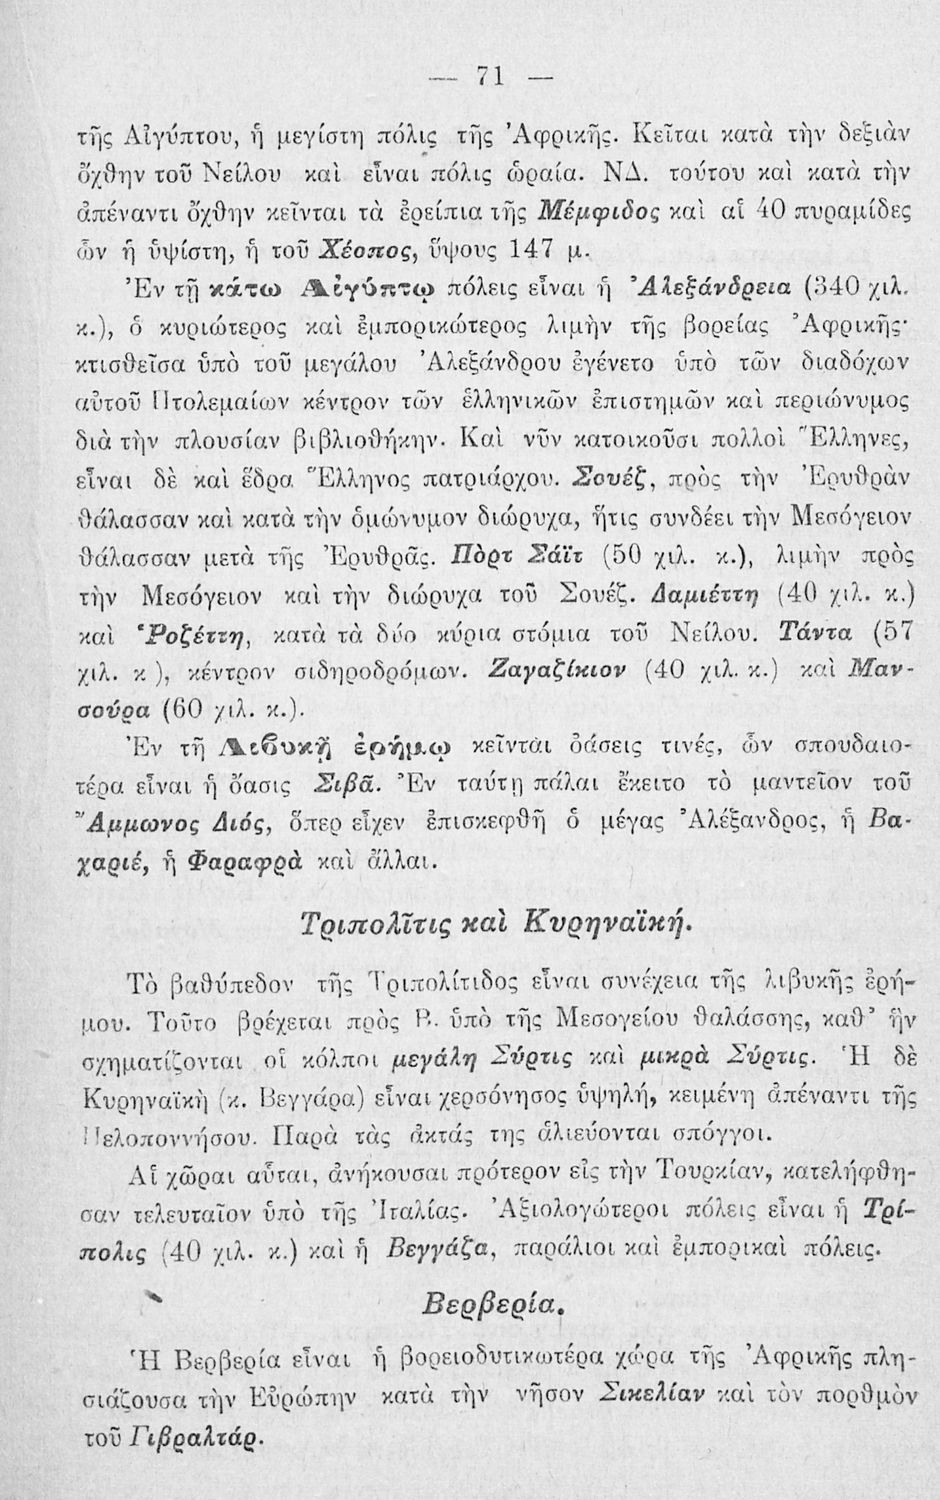 — 71 —
τῆς Αἰγύπτου, ἡ μεγίστη πόλις τῆς Ἀφρικῆς. Κεῖται κατὰ τὴν δεξιὰν
ὄχθην τοῦ Νείλου καὶ εἶναι πόλις ὡραία. ΝΔ. τούτου καὶ κατὰ τὴν
ἀπέναντι ὄχθην κεῖνται τὰ ἐρείπια τῆς Μέμφιδος καὶ αἱ 40 πυραμίδες
ὧν ἡ ὑψίστη, ἡ τοῦ Χέοπος, ὕψους 147 μ.
Ἐν τῇ κάτω Αἰγύπτῳ πόλεις εἶναι ἡ Ἀλεξάνδρεια (340 χιλ.
κ.), ὁ κυριώτερος καὶ ἐμπορικώτερος λιμὴν τῆς βορείας Ἀφρικῆς·
κτισθεῖσα ὑπὸ τοῦ μεγάλου Ἀλεξάνδρου ἐγένετο ὑπὸ τῶν διαδόχων
αὐτοῦ Πτολεμαίων κέντρον τῶν ἑλληνικῶν ἐπιστημῶν καὶ περιώνυμος
διὰ τὴν πλουσίαν βιβλιοθήκην. Καὶ νῦν κατοικοῦσι πολλοὶ Ἕλληνες,
εἶναι δὲ καὶ ἕδρα Ἕλληνος πατριάρχου. Σουέζ, πρὸς τὴν Ἐρυθρὰν
θάλασσαν καὶ κατὰ τὴν ὁμώνυμον διώρυχα, ἥτις συνδέει τὴν Μεσόγειον
θάλασσαν μετὰ τῆς Ἐρυθρᾶς. Πὸρτ Σάϊτ (50 χιλ. κ.), λιμὴν πρὸς
τὴν Μεσόγειον καὶ τὴν διώρυχα τοῦ Σουέζ. Δαμιέττη (40 χιλ. κ.)
καὶ Ῥοζέττη, κατὰ τὰ δύο κύρια στόμια τοῦ Νείλου. Τάντα (57
χιλ. κ ), κέντρον σιδηροδρόμων. Ζαγαζίκιον (40 χιλ. κ.) καὶ Μαν-
σούρα (60 χιλ. κ.).
Ἐν τῇ Λιβυκῇ ἐρήμῳ κεῖνται ὀάσεις τινές, ὧν σπουδαιο-
τέρα εἶναι ἡ ὄασις Σιβᾶ. Ἐν ταύτῃ πάλαι ἔκειτο τὸ μαντεῖον τοῦ
Ἄμμωνος Διός, ὅπερ εἶχεν ἐπισκεφθῆ ὁ μέγας Ἀλέξανδρος, ἡ Βα-
χαριέ, ἡ Φαραφρὰ καὶ ἄλλαι.
Τριπολῖτις καὶ Κυρηναϊκή.
Τὸ βαθύπεδον τῆς Τριπολίτιδος εἶναι συνέχεια τῆς λιβυκῆς ἐρή-
μου. Τοῦτο βρέχεται πρὸς Β. ὑπὸ τῆς Μεσογείου θαλάσσης, καθ' ἣν
σχηματίζονται οἱ κόλποι μεγάλη Σύρτις καὶ μικρὰ Σύρτις. Ἡ δὲ
Κυρηναϊκὴ (κ. Βεγγάρα) εἶναι χερσόνησος ὑψηλή, κειμένη ἀπέναντι τῆς
Πελοποννήσου. Παρὰ τὰς ἀκτάς της ἁλιεύονται σπόγγοι.
Αἱ χῶραι αὗται, ἀνήκουσαι πρότερον εἰς τὴν Τουρκίαν, κατελήφθη-
σαν τελευταῖον ὑπὸ τῆς Ἰταλίας. Ἀξιολογώτεροι πόλεις εἶναι ἡ Τρί-
πολις (40 χιλ. κ.) καὶ ἡ Βεγγάζα, παράλιοι καὶ ἐμπορικαὶ πόλεις.
Βερβερία.
Ἡ Βερβερία εἶναι ἡ βορειοδυτικωτέρα χώρα τῆς Ἀφρικῆς πλη-
σιάζουσα τὴν Εὐρώπην κατὰ τὴν νῆσον Σικελίαν καὶ τὸν πορθμὸν
τοῦ Γιβραλτάρ.